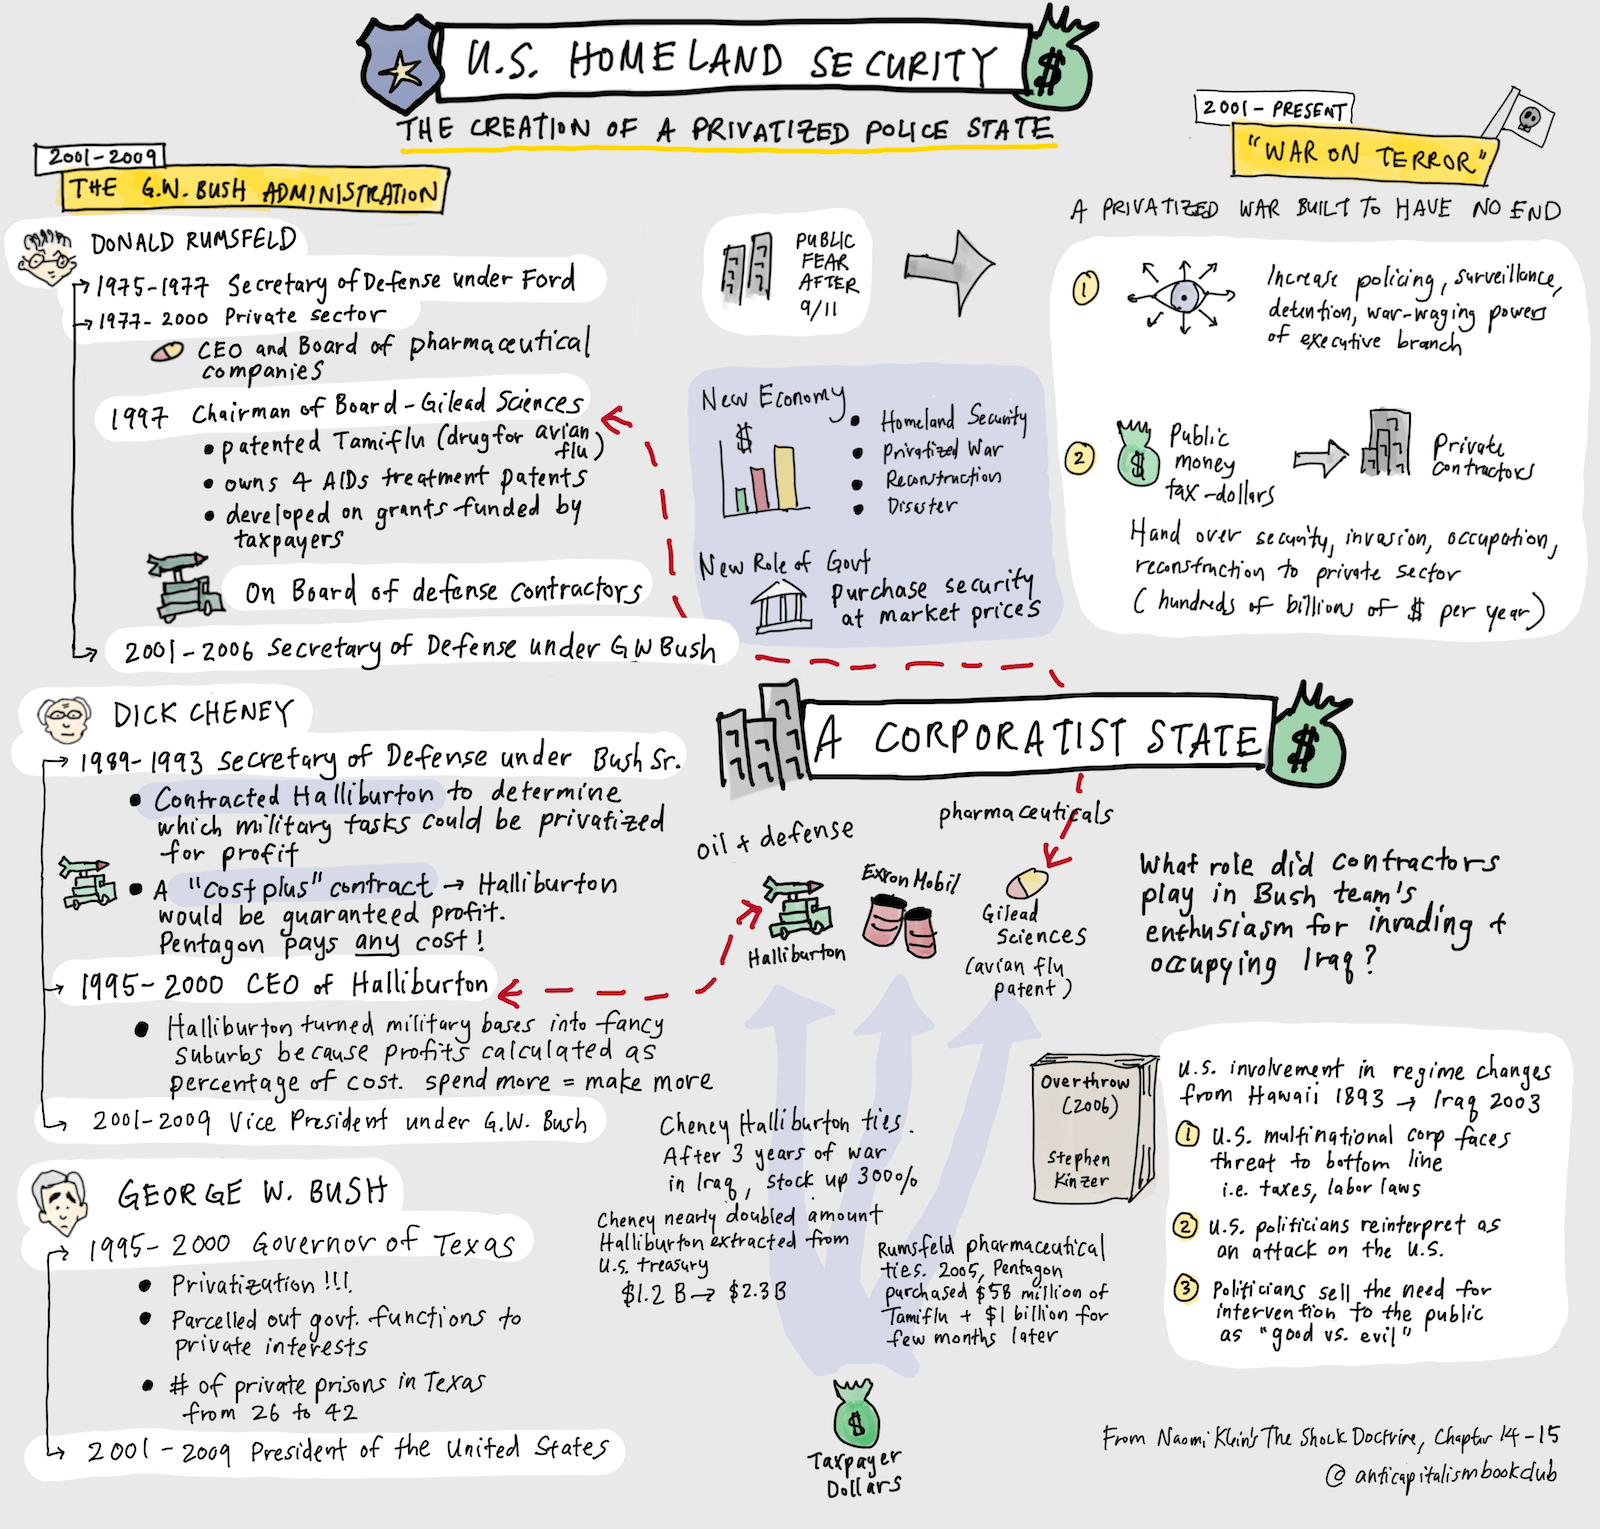 U.S. HOMELAND SECURITY
$
THE CREATION OF A PRIVATIZED POLICE STATE
2001-2009
THE G.W. BUSH ADMINISTRATION
DONALD RUMSFELD
1975-1977 Secretary of Defense under Ford
1977-2000 Private sector
CEO and Board of pharmaceutical
companies
1997 Chairman of Board - Gilead Sciences
• patented Tamiflu (drug for avian
flu)
• owns 4 AIDs treatment patents
• developed on grants funded by
taxpayers
On Board of defense contractors
2001-2006 Secretary of Defense under GW Bush
DICK CHENEY
1989-1993 Secretary of Defense under Bush Sr.
• Contracted Halliburton to determine
which military tasks could be privatized
for profit
• A "cost plus" contract → Halliburton
would be guaranteed profit.
Pentagon pays any cost!
1995-2000 CEO of Halliburton
• Halliburton turned military bases into fancy
suburbs because profits calculated as
percentage of cost. spend more = make more
2001-2009 Vice President under G.W. Bush
GEORGE W. BUSH
1995-2000 Governor of Texas
• Privatization!!!
• Parcelled out govt. functions to
private interests
• # of private prisons in Texas
from 26 to 42
2001-2009 President of the United States
PUBLIC
FEAR
AFTER
9/11
New Economy
$
• Homeland Security
• Privatized War
• Reconstruction
• Disaster
New Role of Govt
purchase security
at market prices
2001- PRESENT
"WAR ON TERROR"
A PRIVATIZED WAR BUILT TO HAVE NO END
1
Increase policing, surveillance,
detention, war-waging powers
of executive branch
2
$
Public
money
tax-dollars
Private
contractors
Hand over security, invasion, occupation,
reconstruction to private sector
(hundreds of billions of $ per year)
A CORPORATIST STATE
$
oil + defense
pharmaceuticals
Halliburton
Exxon Mobil
Gilead
Sciences
(avian flu
patent)
What role did contractors
play in Bush team's
enthusiasm for invading +
occupying Iraq?
Cheney Halliburton ties.
After 3 years of war
in Iraq, stock up 300%
Cheney nearly doubled amount
Halliburton extracted from
U.S. treasury
$1.2 B → $2.3 B
Rumsfeld pharmaceutical
ties. 2005, Pentagon
purchased $58 million of
Tamiflu + $1 billion for
few months later
$
Taxpayer
Dollars
Overthrow
(2006)
Stephen
Kinzer
U.S. involvement in regime changes
from Hawaii 1893 → Iraq 2003
1 U.S. multinational corp faces
threat to bottom line
i.e. taxes, labor laws
2 U.S. politicians reinterpret as
an attack on the U.S.
3 Politicians sell the need for
intervention to the public
as "good vs. evil"
From Naomi Klein's The Shock Doctrine, Chapter 14-15
@anticapitalismbookclub